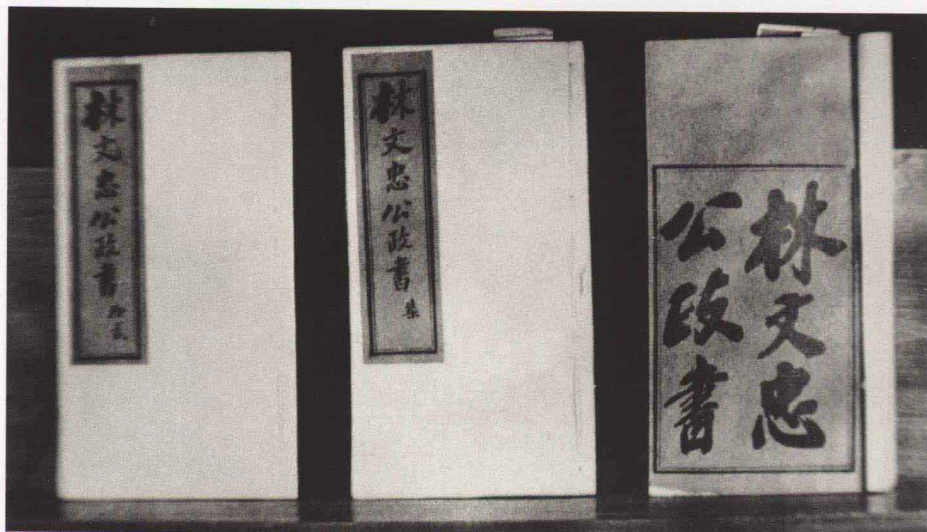 林文忠公政書
林文忠公政書
林文忠
公政書